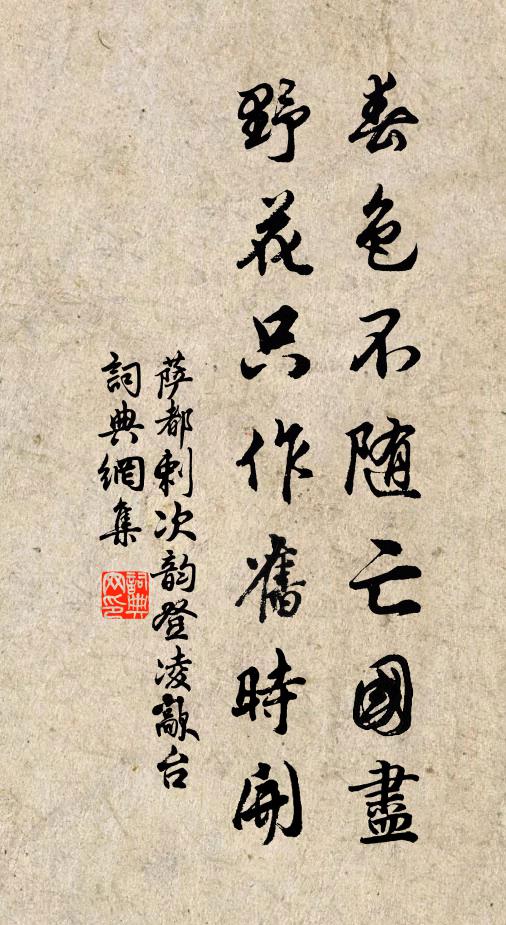 春色不随亡國盡
野花只作舊時開
薩都剌次韵登凌歊台
詞典網集
詞典
网印